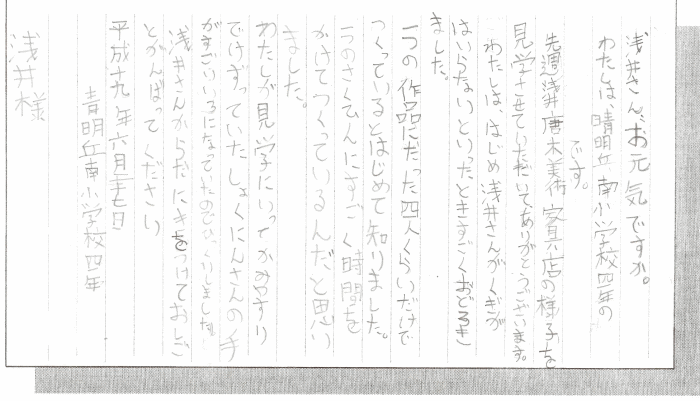 浅井さん、お元気ですか。
わたしは、晴明丘南小学校四年の
です。
先週浅井唐木美術家具店の様子を
見学させていただいて、ありがとうございます。
わたしは、はじめ浅井さんがくぎが
はいらないといったときすごくおどろき
ました。
一つの作品にだった四人くらいだけで
つくっているとはじめて知りました。
一つのさくひんにすごく時間を
かけてつくっているんだと思い
ました。
わたしが見学にいってかみやすり
でけずっていたしょくにんさんの手
がすごいいろになっていたのでびっくりしました。
浅井さんからだにきをつけておしご
とがんばってください
平成十九年六月二十七日
青明丘南小学校四年
浅井様